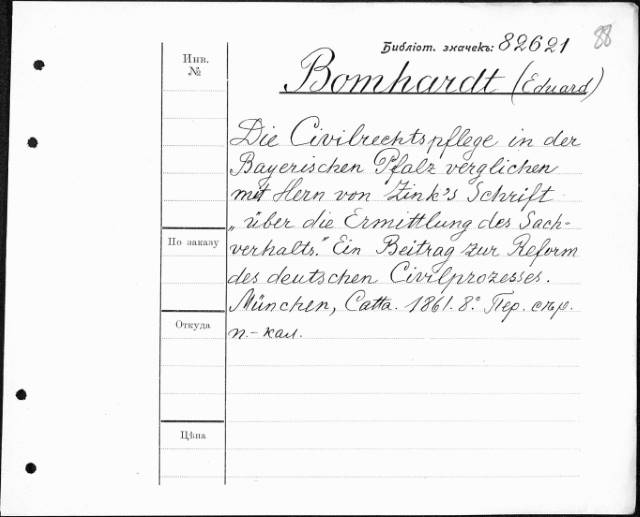 Библіот. значекъ: 82621 88
Инв.
№
Bomhardt (Eduard)
Die Civilrechtspflege in der
Bayerischen Pfalz verglichen
mit Hern von Zink's Schrift
„über die Ermittlung des Sach-
По заказу
verhalts." Ein Beitrag zur Reform
des deutschen Civilprozesses.
München, Catta. 1861. 8.° Пер. скр.
Откуда
п.-кал.
Цѣна